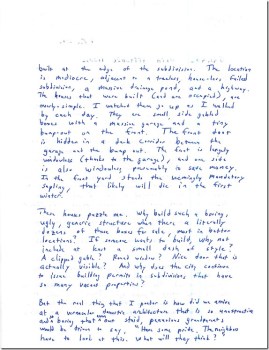 built at the edge of the subdivision. The location
is mediocre, adjacent to a treeless, houseless, failed
subdivision, a massive drainage pond, and a highway.
The homes that were built (and are occupied), are
merely simple. I watched them go up as I walked
by each day. They are small side gabled
boxes with a massive garage and a tiny
bump-out on the front. The front door
is hidden in a dark corridor between the
garage and the bump out. The fact is largely
windowless (thanks to the garage), and one side
is also windowless presumably to save money.
In the front yard stands the seemingly mandatory
sapling, that likely will die in the first
winter.
These houses puzzle me. Why build such a boring,
ugly, generic structure when there are literally
dozens of these boxes for sale, most in better
locations? If someone wants to build, why not
include at least a small dash of style?
A clipped gable? Picture window? Nice door that is
actually visible? And why does the city continue
to issue building permits in subdivisions that have
so many vacant properties?
But the real thing that I ponder is how did we arrive
at a vernacular domestic architecture that is so unattractive
and boring that our staid, penurious grandparents
would be driven to say, "Have some pride. The neighbors
have to look at this. What will they think?"